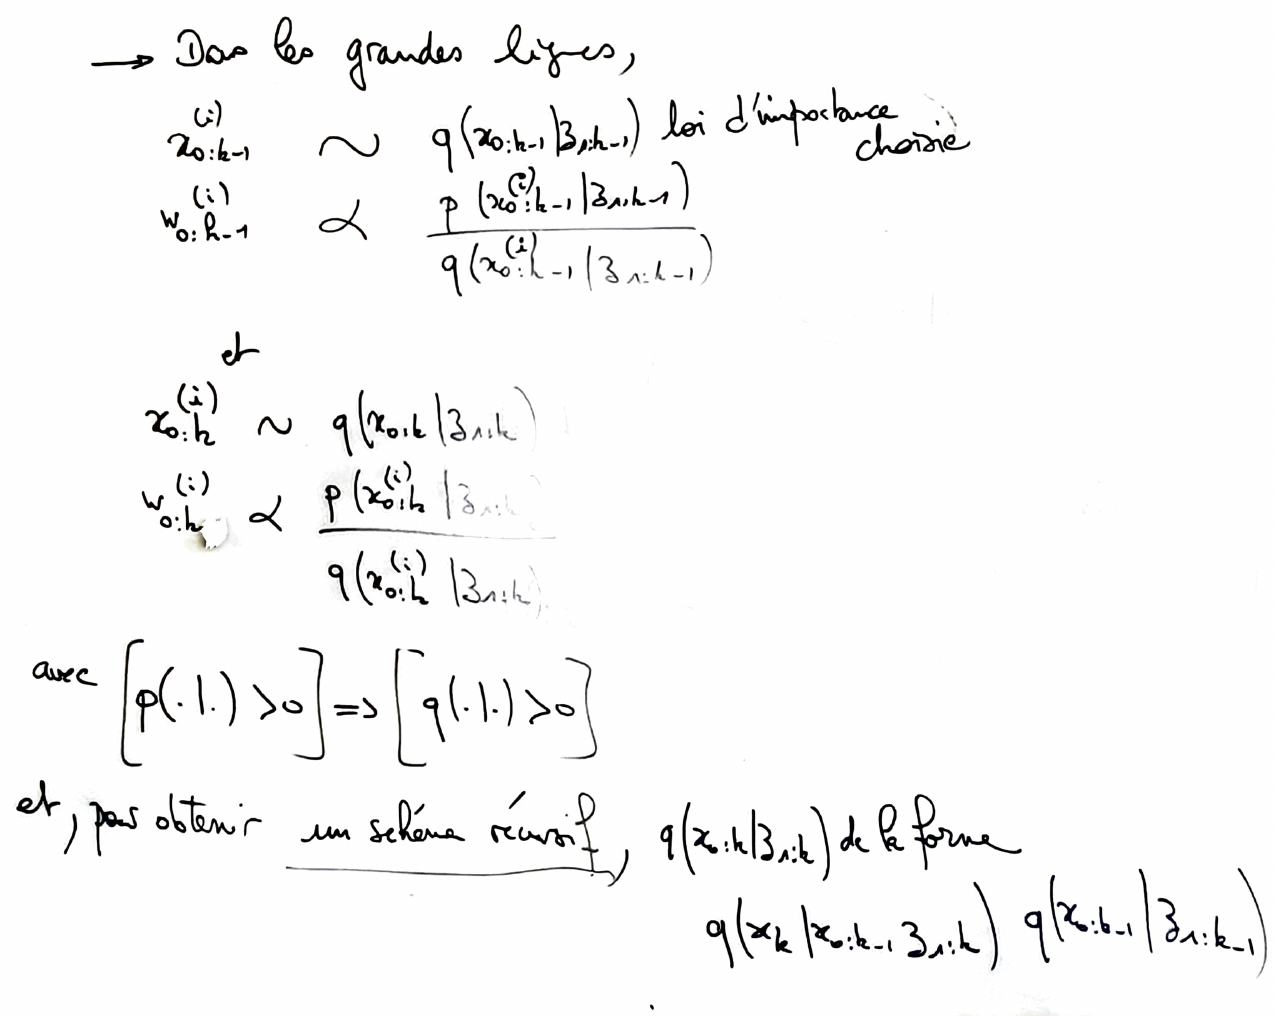 → Dans les grandes lignes,
x_{0:k-1}^{(i)} ∼ q(x_{0:k-1}|z_{1:k-1}) loi d'importance choisie
w_{0:k-1}^{(i)} ∝ p(x_{0:k-1}^{(i)}|z_{1:k-1}) / q(x_{0:k-1}^{(i)}|z_{1:k-1})
et
x_{0:k}^{(i)} ∼ q(x_{0:k}|z_{1:k})
w_{0:k}^{(i)} ∝ p(x_{0:k}^{(i)}|z_{1:k}) / q(x_{0:k}^{(i)}|z_{1:k})
avec [p(.|.) >0] => [q(.|.) >0]
et, pour obtenir un schéma récursif, q(x_{0:k}|z_{1:k}) de la forme
q(x_k|x_{0:k-1} z_{1:k}) q(x_{0:k-1}|z_{1:k-1})